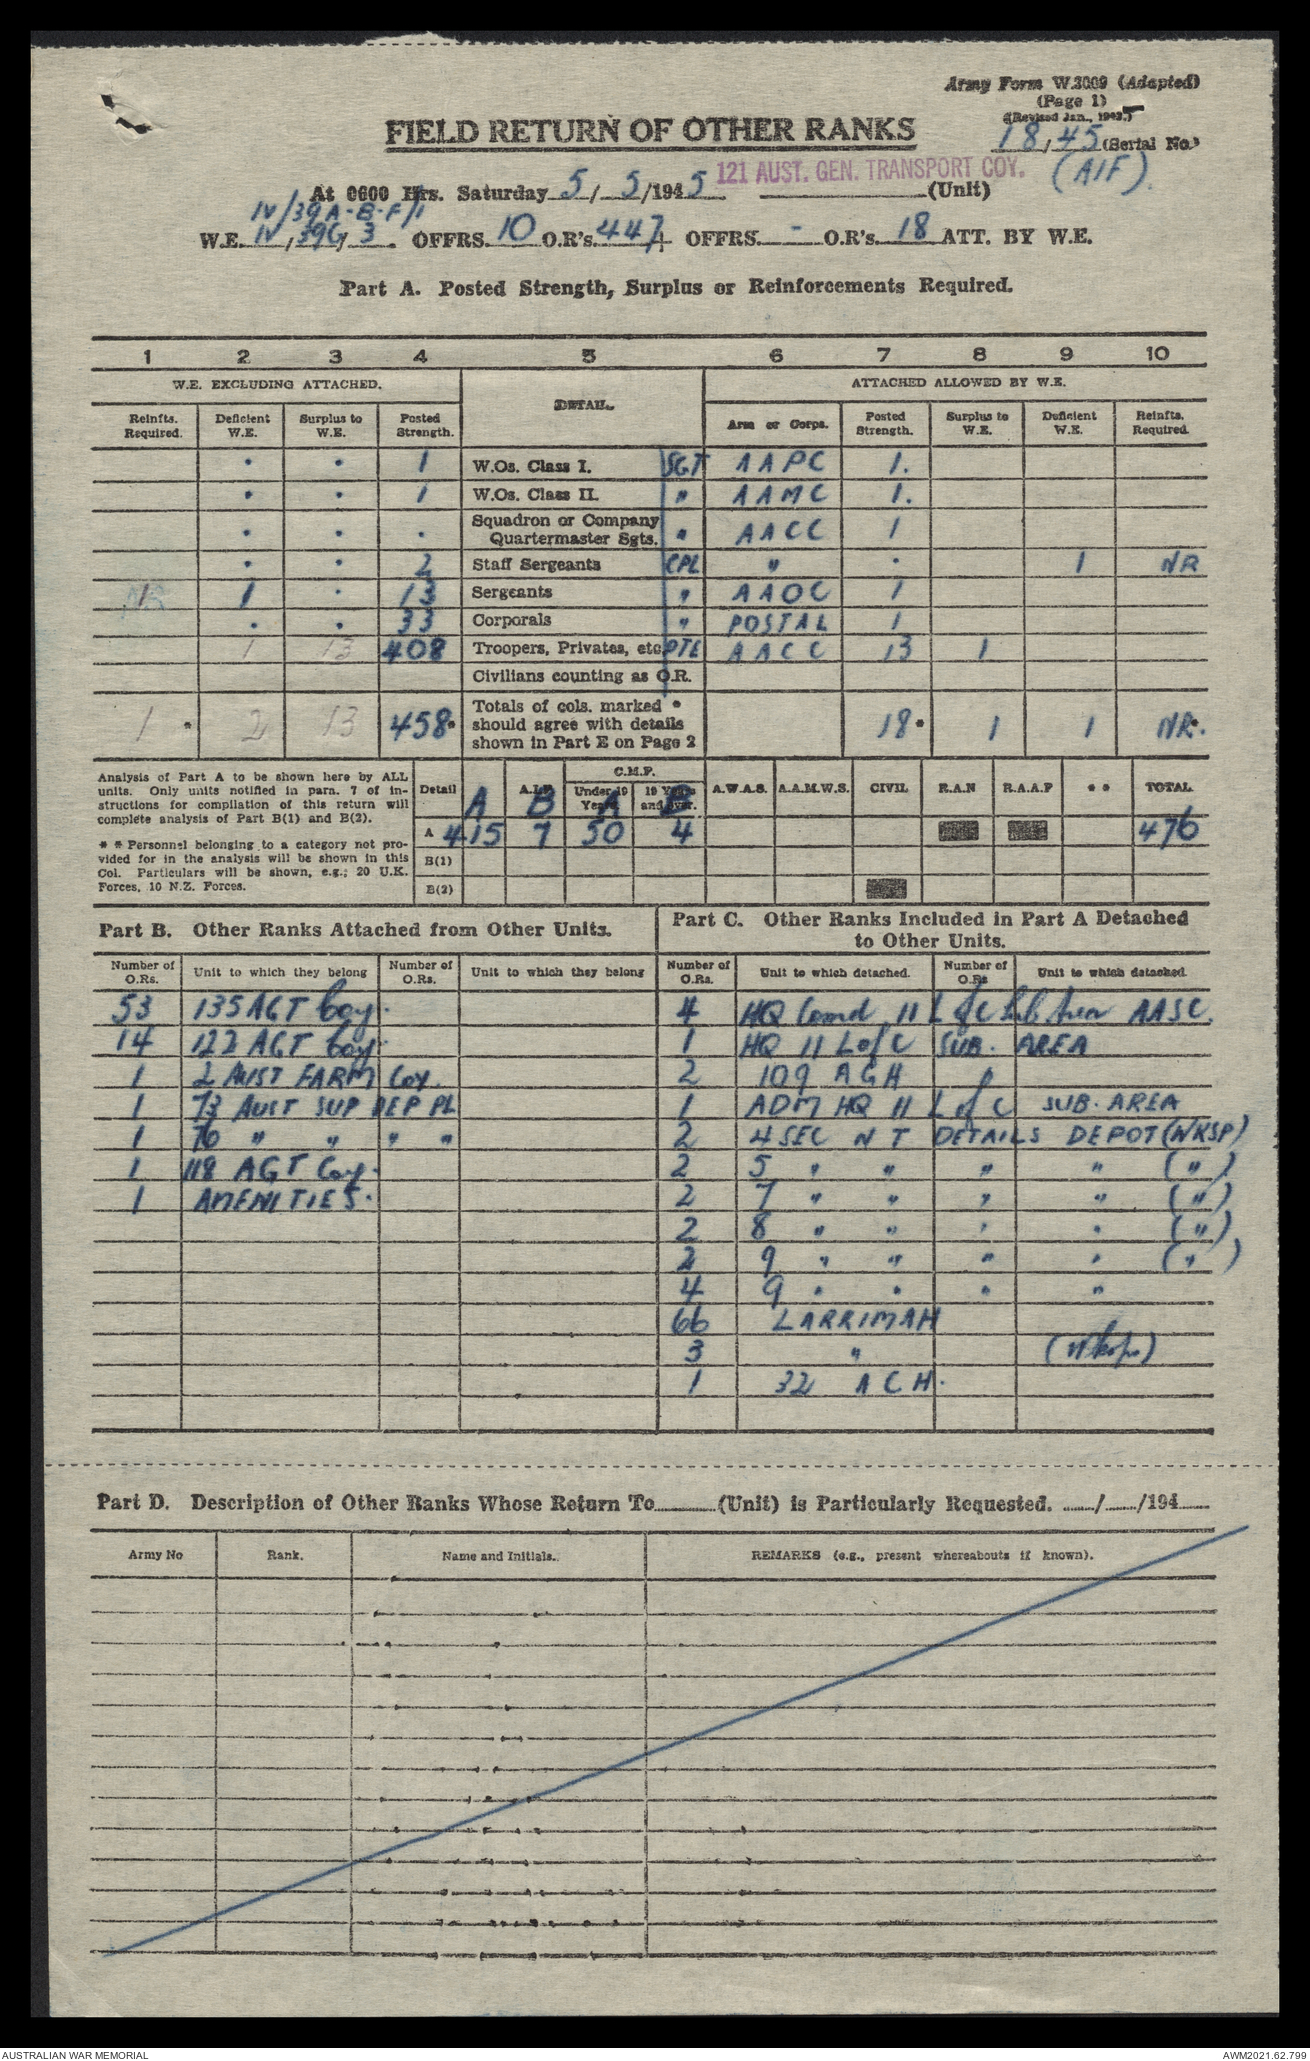 Army Form W.3009 (Adapted)
(Page 1)
(Revised Jan., 1943.)
FIELD RETURN OF OTHER RANKS
18/45 (Serial No.)
121 AUST. GEN. TRANSPORT COY. (AIF).
At 0600 Hrs. Saturday 5/5/1945 (Unit)
IV/39 A-B-F/1
W.E. IV/39G/3. OFFRS. 10 O.R's. 447 + OFFRS. - O.R's. 18 ATT. BY W.E.
Part A. Posted Strength, Surplus or Reinforcements Required.
1 2 3 4 5 6 7 8 9 10
W.E. EXCLUDING ATTACHED. DETAIL. ATTACHED ALLOWED BY W.E.
Reinfts. Required. Deficient W.E. Surplus to W.E. Posted Strength. Arm or Corps. Posted Strength. Surplus to W.E. Deficient W.E. Reinfts. Required.
. . 1 W.Os. Class I. SGT AAPC 1.
. . 1 W.Os. Class II. " AAMC 1.
. . . Squadron or Company Quartermaster Sgts. " AACC 1
. . 2 Staff Sergeants CPL " . 1 NR
1 1 . 13 Sergeants " AAOC 1
. . 33 Corporals " POSTAL 1
1 13 408 Troopers, Privates, etc. PTE AACC 13 1
Civilians counting as O.R.
1 * 2 13 458* Totals of cols. marked * should agree with details shown in Part E on Page 2 18* 1 1 NR*.
Analysis of Part A to be shown here by ALL units. Only units notified in para. 7 of instructions for compilation of this return will complete analysis of Part B(1) and B(2).
* * Personnel belonging to a category not provided for in the analysis will be shown in this Col. Particulars will be shown, e.g.; 20 U.K. Forces, 10 N.Z. Forces.
Detail A.I.F. C.M.F. Under 19 Years 19 Years and over. A.W.A.S. A.A.M.W.S. CIVIL R.A.N R.A.A.F * * TOTAL
A B A B
A 415 7 50 4 476
B(1)
B(2)
Part B. Other Ranks Attached from Other Units.
Number of O.Rs. Unit to which they belong Number of O.Rs. Unit to which they belong
53 135 AGT Coy.
14 122 AGT Coy.
1 2 AUST FARM Coy.
1 73 AUST SUP DEP PL
1 76 " " " "
1 118 AGT Coy.
1 AMENITIES.
Part C. Other Ranks Included in Part A Detached to Other Units.
Number of O.Rs. Unit to which detached. Number of O.Rs Unit to which detached.
4 HQ Comd 11 L of C Sub Area AASC.
1 HQ 11 L of C SUB. AREA
2 109 AGH
1 ADM HQ 11 L of C SUB. AREA
2 4 SEC N T DETAILS DEPOT (WKSP)
2 5 " " " " (")
2 7 " " " " (")
2 8 " " " " (")
2 9 " " " " (")
4 9 " " " "
66 LARRIMAH
3 " (Wksps)
1 32 ACH.
Part D. Description of Other Ranks Whose Return To (Unit) is Particularly Requested. / /194
Army No Rank. Name and Initials. REMARKS (e.g., present whereabouts if known).
AUSTRALIAN WAR MEMORIAL AWM2021.62.799